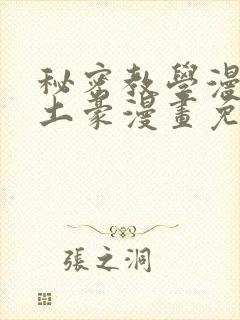 秘密教學漫
土豪漫畫免
張之洞